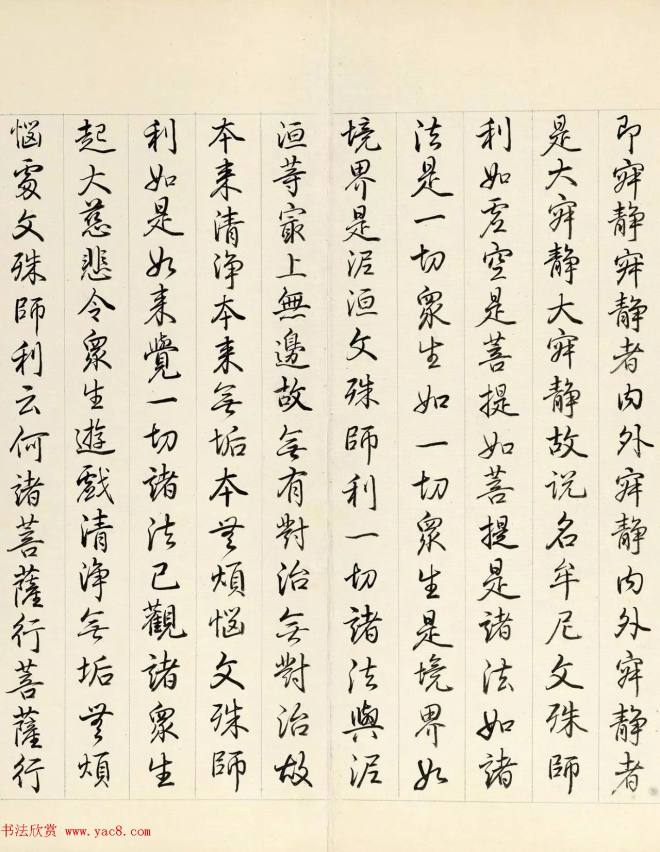 即寂静寂静者内外寂静内外寂静者
是大寂静大寂静故说名牟尼文殊師
利如虚空是菩提如菩提是諸法如諸
法是一切衆生如一切衆生是境界如
境界是泥洹文殊師利一切諸法與泥
洹等㝡上無邊故無有對治無對治故
本来清淨本来無垢本無煩惱文殊師
利如是如来覺一切諸法已觀諸衆生
起大慈悲令衆生遊戲清淨無垢無煩
惱處文殊師利云何諸菩薩行菩薩行
书法欣赏 www.yac8.com